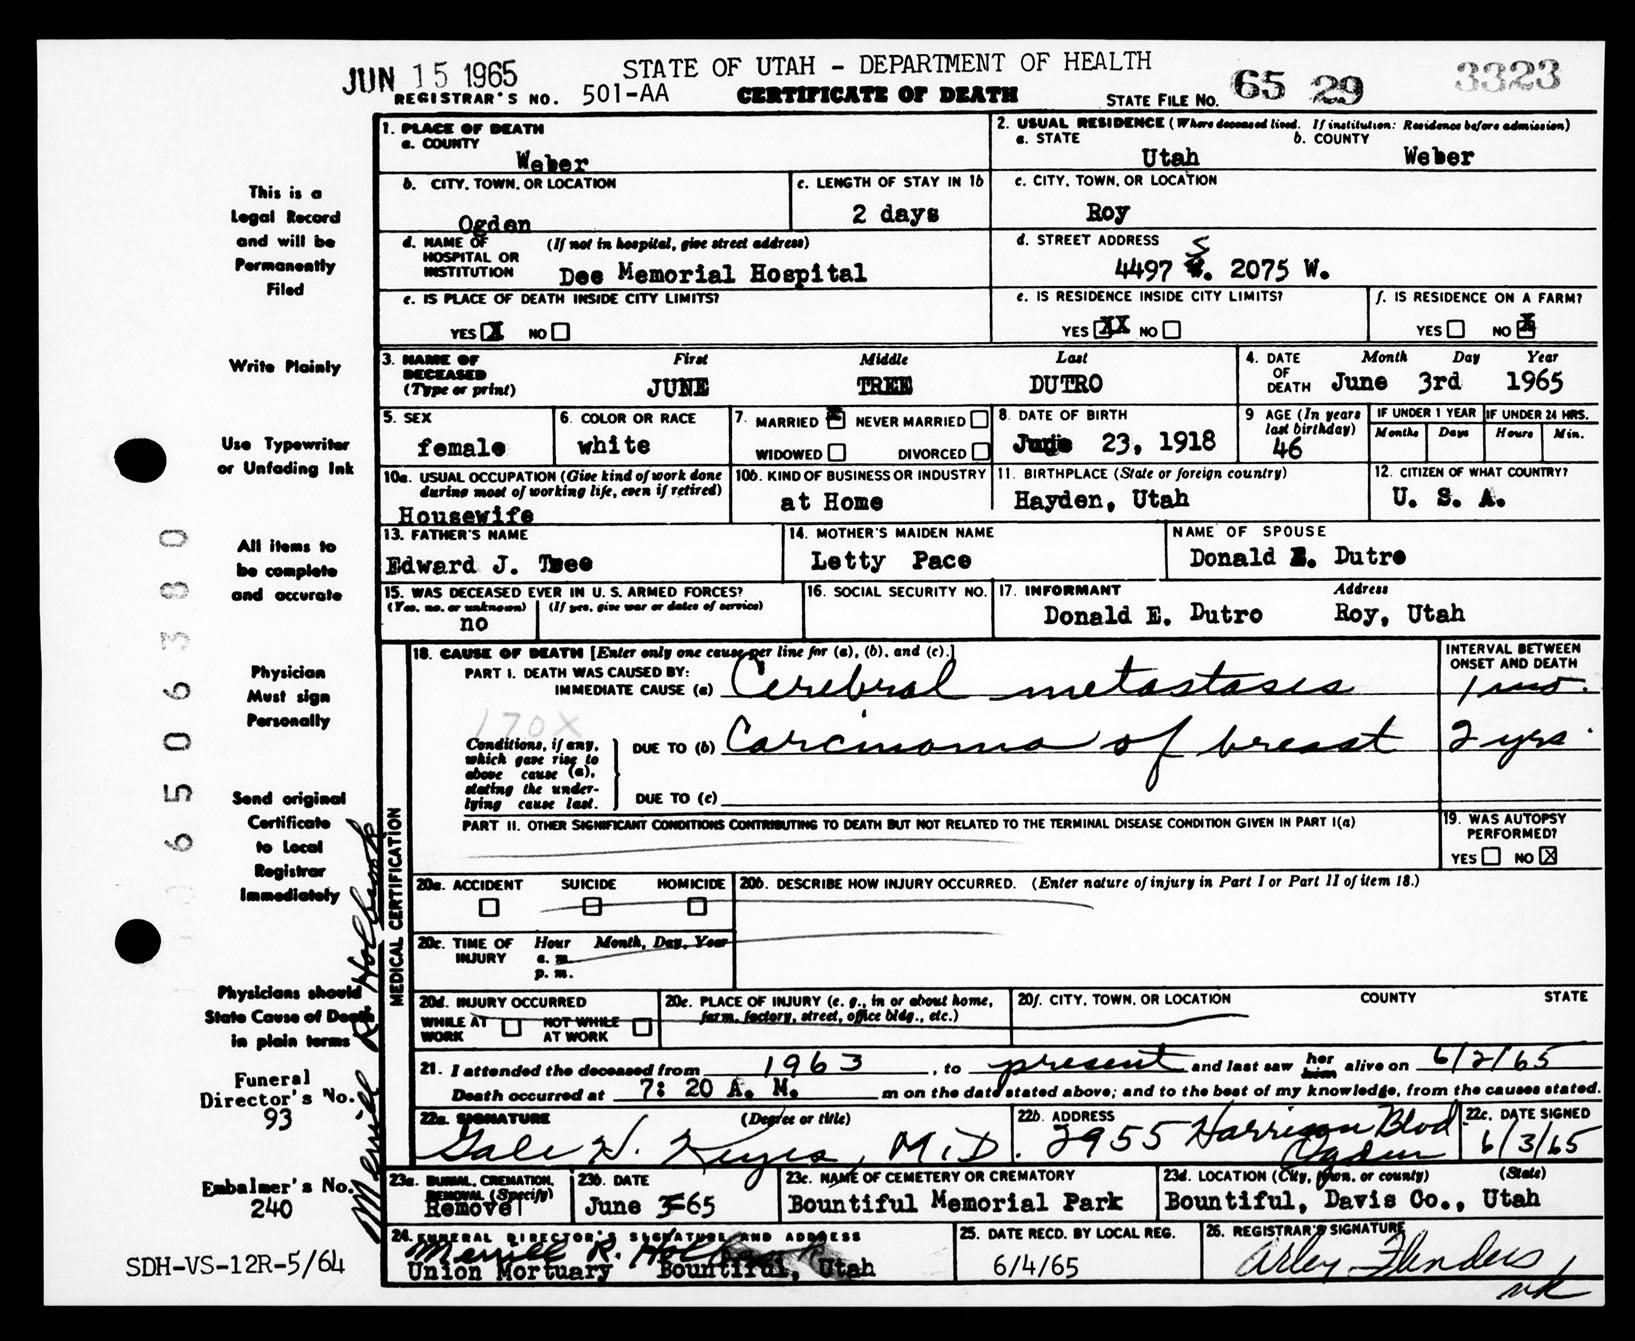 JUN 15 1965
STATE OF UTAH - DEPARTMENT OF HEALTH
REGISTRAR'S NO. 501-AA
CERTIFICATE OF DEATH
STATE FILE NO. 65 29 3323
1. PLACE OF DEATH
a. COUNTY
Weber
2. USUAL RESIDENCE (Where deceased lived. If institution: Residence before admission)
a. STATE b. COUNTY
Utah Weber
b. CITY, TOWN, OR LOCATION
Ogden
c. LENGTH OF STAY IN 1b
2 days
c. CITY, TOWN, OR LOCATION
Roy
d. NAME OF (If not in hospital, give street address)
HOSPITAL OR
INSTITUTION Dee Memorial Hospital
d. STREET ADDRESS
4497 S. 2075 W.
e. IS PLACE OF DEATH INSIDE CITY LIMITS?
YES X NO
e. IS RESIDENCE INSIDE CITY LIMITS?
YES XX NO
f. IS RESIDENCE ON A FARM?
YES NO X
3. NAME OF First Middle Last
DECEASED
(Type or print) JUNE TREE DUTRO
4. DATE Month Day Year
OF
DEATH June 3rd 1965
5. SEX
female
6. COLOR OR RACE
white
7. MARRIED X NEVER MARRIED
WIDOWED DIVORCED
8. DATE OF BIRTH
June 23, 1918
9 AGE (In years
last birthday)
46
IF UNDER 1 YEAR IF UNDER 24 HRS.
Months Days Hours Min.
10a. USUAL OCCUPATION (Give kind of work done
during most of working life, even if retired)
Housewife
10b. KIND OF BUSINESS OR INDUSTRY
at Home
11. BIRTHPLACE (State or foreign country)
Hayden, Utah
12. CITIZEN OF WHAT COUNTRY?
U. S. A.
13. FATHER'S NAME
Edward J. Tree
14. MOTHER'S MAIDEN NAME
Letty Pace
NAME OF SPOUSE
Donald E. Dutro
15. WAS DECEASED EVER IN U. S. ARMED FORCES?
(Yes, no, or unknown) (If yes, give war or dates of service)
no
16. SOCIAL SECURITY NO.
17. INFORMANT Address
Donald E. Dutro Roy, Utah
18. CAUSE OF DEATH [Enter only one cause per line for (a), (b), and (c).]
PART I. DEATH WAS CAUSED BY:
IMMEDIATE CAUSE (a) Cerebral metastases
INTERVAL BETWEEN
ONSET AND DEATH
1 mo.
170X
Conditions, if any,
which gave rise to
above cause (a),
stating the under-
lying cause last.
DUE TO (b) Carcinoma of breast 2 yrs.
DUE TO (c)
PART II. OTHER SIGNIFICANT CONDITIONS CONTRIBUTING TO DEATH BUT NOT RELATED TO THE TERMINAL DISEASE CONDITION GIVEN IN PART I(a)
19. WAS AUTOPSY
PERFORMED?
YES NO X
20a. ACCIDENT SUICIDE HOMICIDE
20b. DESCRIBE HOW INJURY OCCURRED. (Enter nature of injury in Part I or Part II of item 18.)
20c. TIME OF Hour Month, Day, Year
INJURY a. m.
p. m.
20d. INJURY OCCURRED
WHILE AT NOT WHILE
WORK AT WORK
20e. PLACE OF INJURY (e. g., in or about home,
farm, factory, street, office bldg., etc.)
20f. CITY, TOWN, OR LOCATION COUNTY STATE
21. I attended the deceased from 1963, to present and last saw her him alive on 6/2/65
Death occurred at 7: 20 A. M. m on the date stated above; and to the best of my knowledge, from the causes stated.
22a. SIGNATURE (Degree or title)
Gale H. Keyes, M.D.
22b. ADDRESS
2955 Harrison Blvd.
Ogden
22c. DATE SIGNED
6/3/65
23a. BURIAL, CREMATION,
REMOVAL (Specify)
Removel
23b. DATE
June 3-65
23c. NAME OF CEMETERY OR CREMATORY
Bountiful Memorial Park
23d. LOCATION (City, town, or county) (State)
Bountiful, Davis Co., Utah
24. FUNERAL DIRECTOR'S SIGNATURE AND ADDRESS
Merrill R. Holbrook
Union Mortuary Bountiful, Utah
25. DATE RECD. BY LOCAL REG.
6/4/65
26. REGISTRAR'S SIGNATURE
Arley Flinders
MEDICAL CERTIFICATION
This is a
Legal Record
and will be
Permanently
Filed
Write Plainly
Use Typewriter
or Unfading Ink
All items to
be complete
and accurate
Physician
Must sign
Personally
Send original
Certificate
to Local
Registrar
Immediately
Physicians should
State Cause of Death
in plain terms
Funeral
Director's No.
93
Embalmer's No.
240
SDH-VS-12R-5/64
Merrill R. Holbrook
6506380